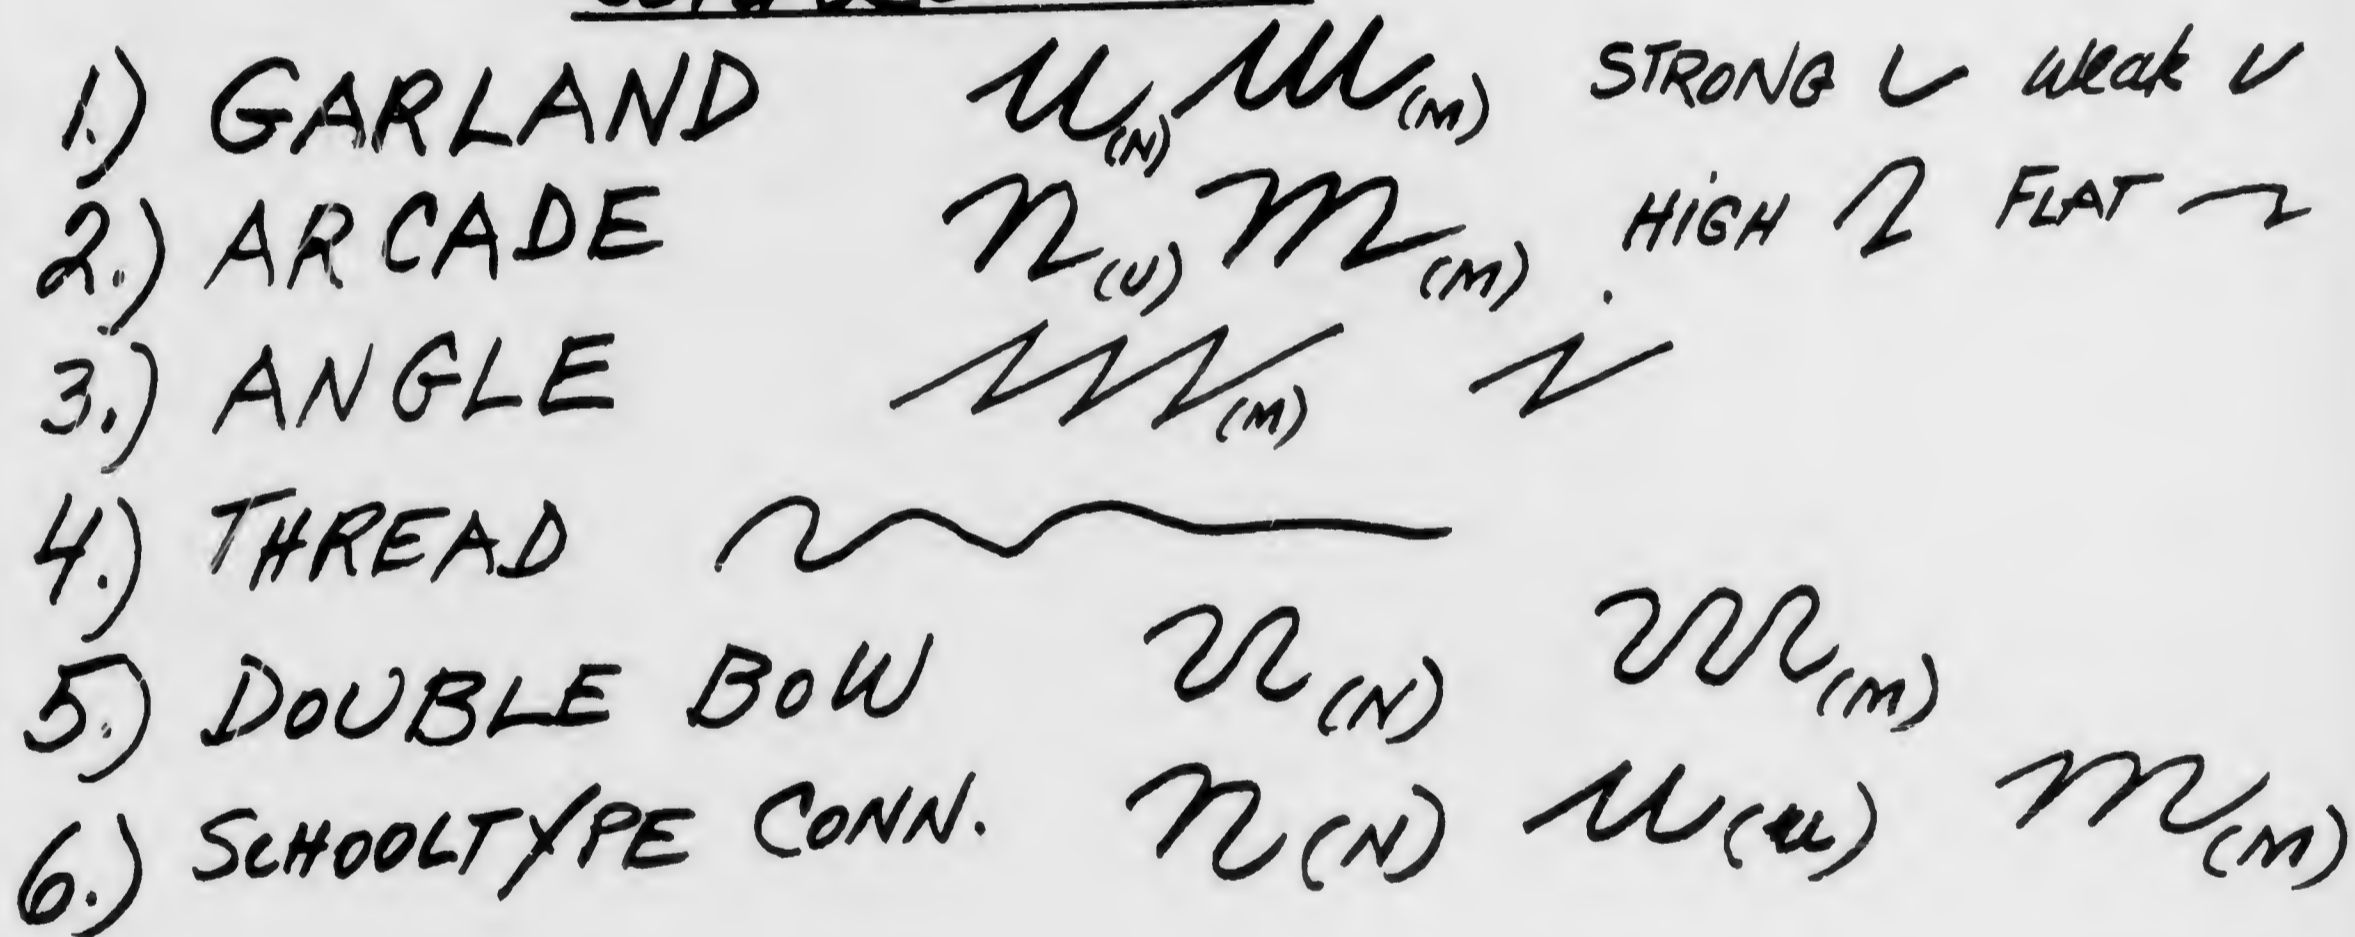 1.) GARLAND u (N) m (M) STRONG weak
2.) ARCADE n (U) m (M) HIGH FLAT
3.) ANGLE m (M)
4.) THREAD
5.) DOUBLE BOW n (N) m (M)
6.) SCHOOLTYPE CONN. n (N) u (u) m (M)